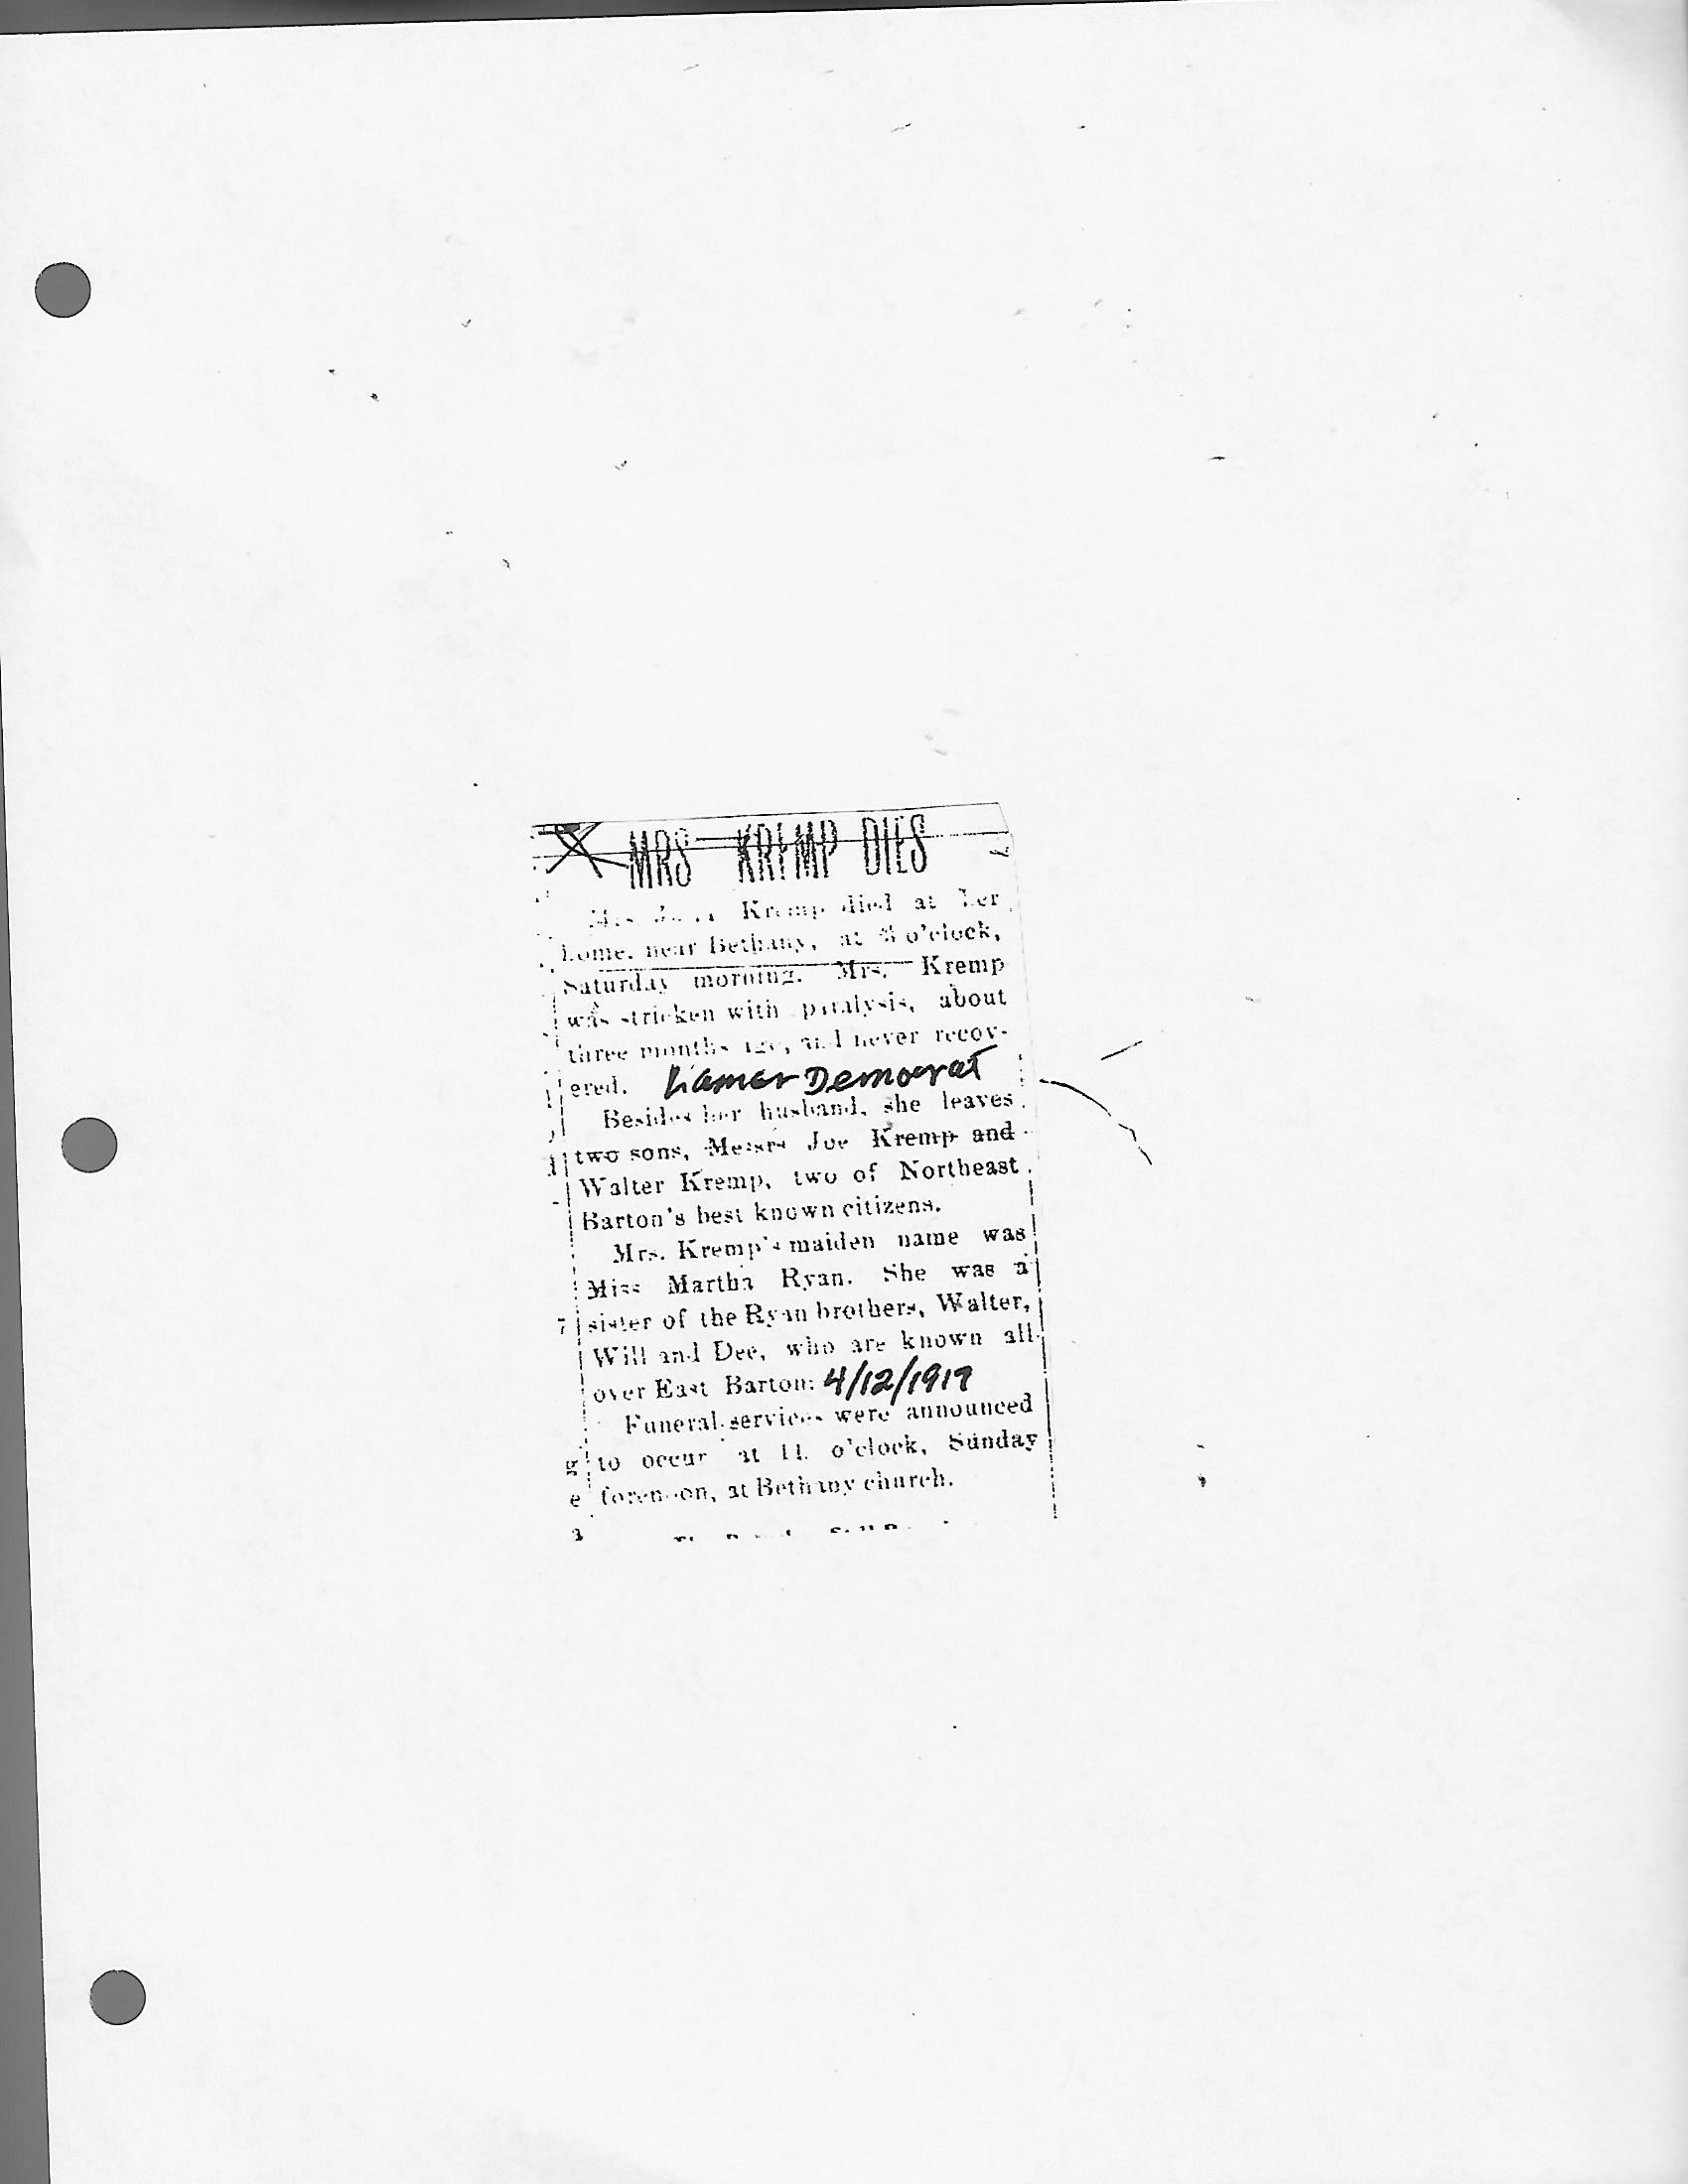 MRS KREMP DIES
Mrs. Kremp died at her
home, near Bethany, at o'clock,
Saturday morning. Mrs. Kremp
was stricken with paralysis, about
three months ago, and never recov-
ered. Lamar Democrat
Besides her husband, she leaves
two sons, Messrs Joe Kremp and
Walter Kremp, two of Northeast
Barton's best known citizens.
Mrs. Kremp's maiden name was
Miss Martha Ryan. She was a
7 sister of the Ryan brothers, Walter,
Will and Dee, who are known all
over East Barton. 4/12/1917
Funeral services were announced
g to occur at 11 o'clock, Sunday
e forenoon, at Bethany church.
a